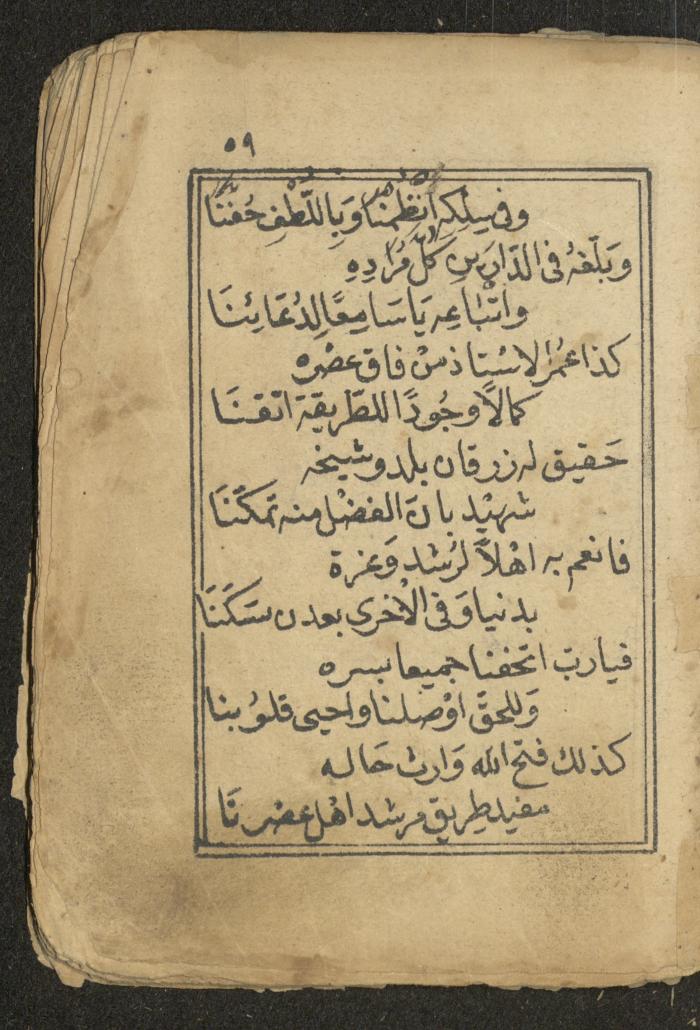 ٥٩
وفى سِلكِهِ انْظِمْنَا وَبِاللّطْفِ حُفَّنَا
وَبَلّغهُ فى الدّارَينِ كلّ مُرَادِهِ
واتْبَاعِه يَا سَامِعًا لِدُعَائِنَا
كذا عُمَرُ الاسْتاذ مَنْ فاق عصْره
كمالاً وجُودًا للطّريقة اتقنَا
حَقيق له زرقان بلد وشيخه
شهيْد بانّ الفضْل منه تمكّنَا
فانعم به اهْلاً لرُشد وَعزة
بدنيا وَفى الْأخرى بعدن سَكَنَا
فيارب اتحفنا جميعا بسره
وَللحقّ اوْصلنا واحيى قلوُبنا
كذلك فتح الله وَارث حَاله
مفيد طريق مرشد اهْل عصرنَا